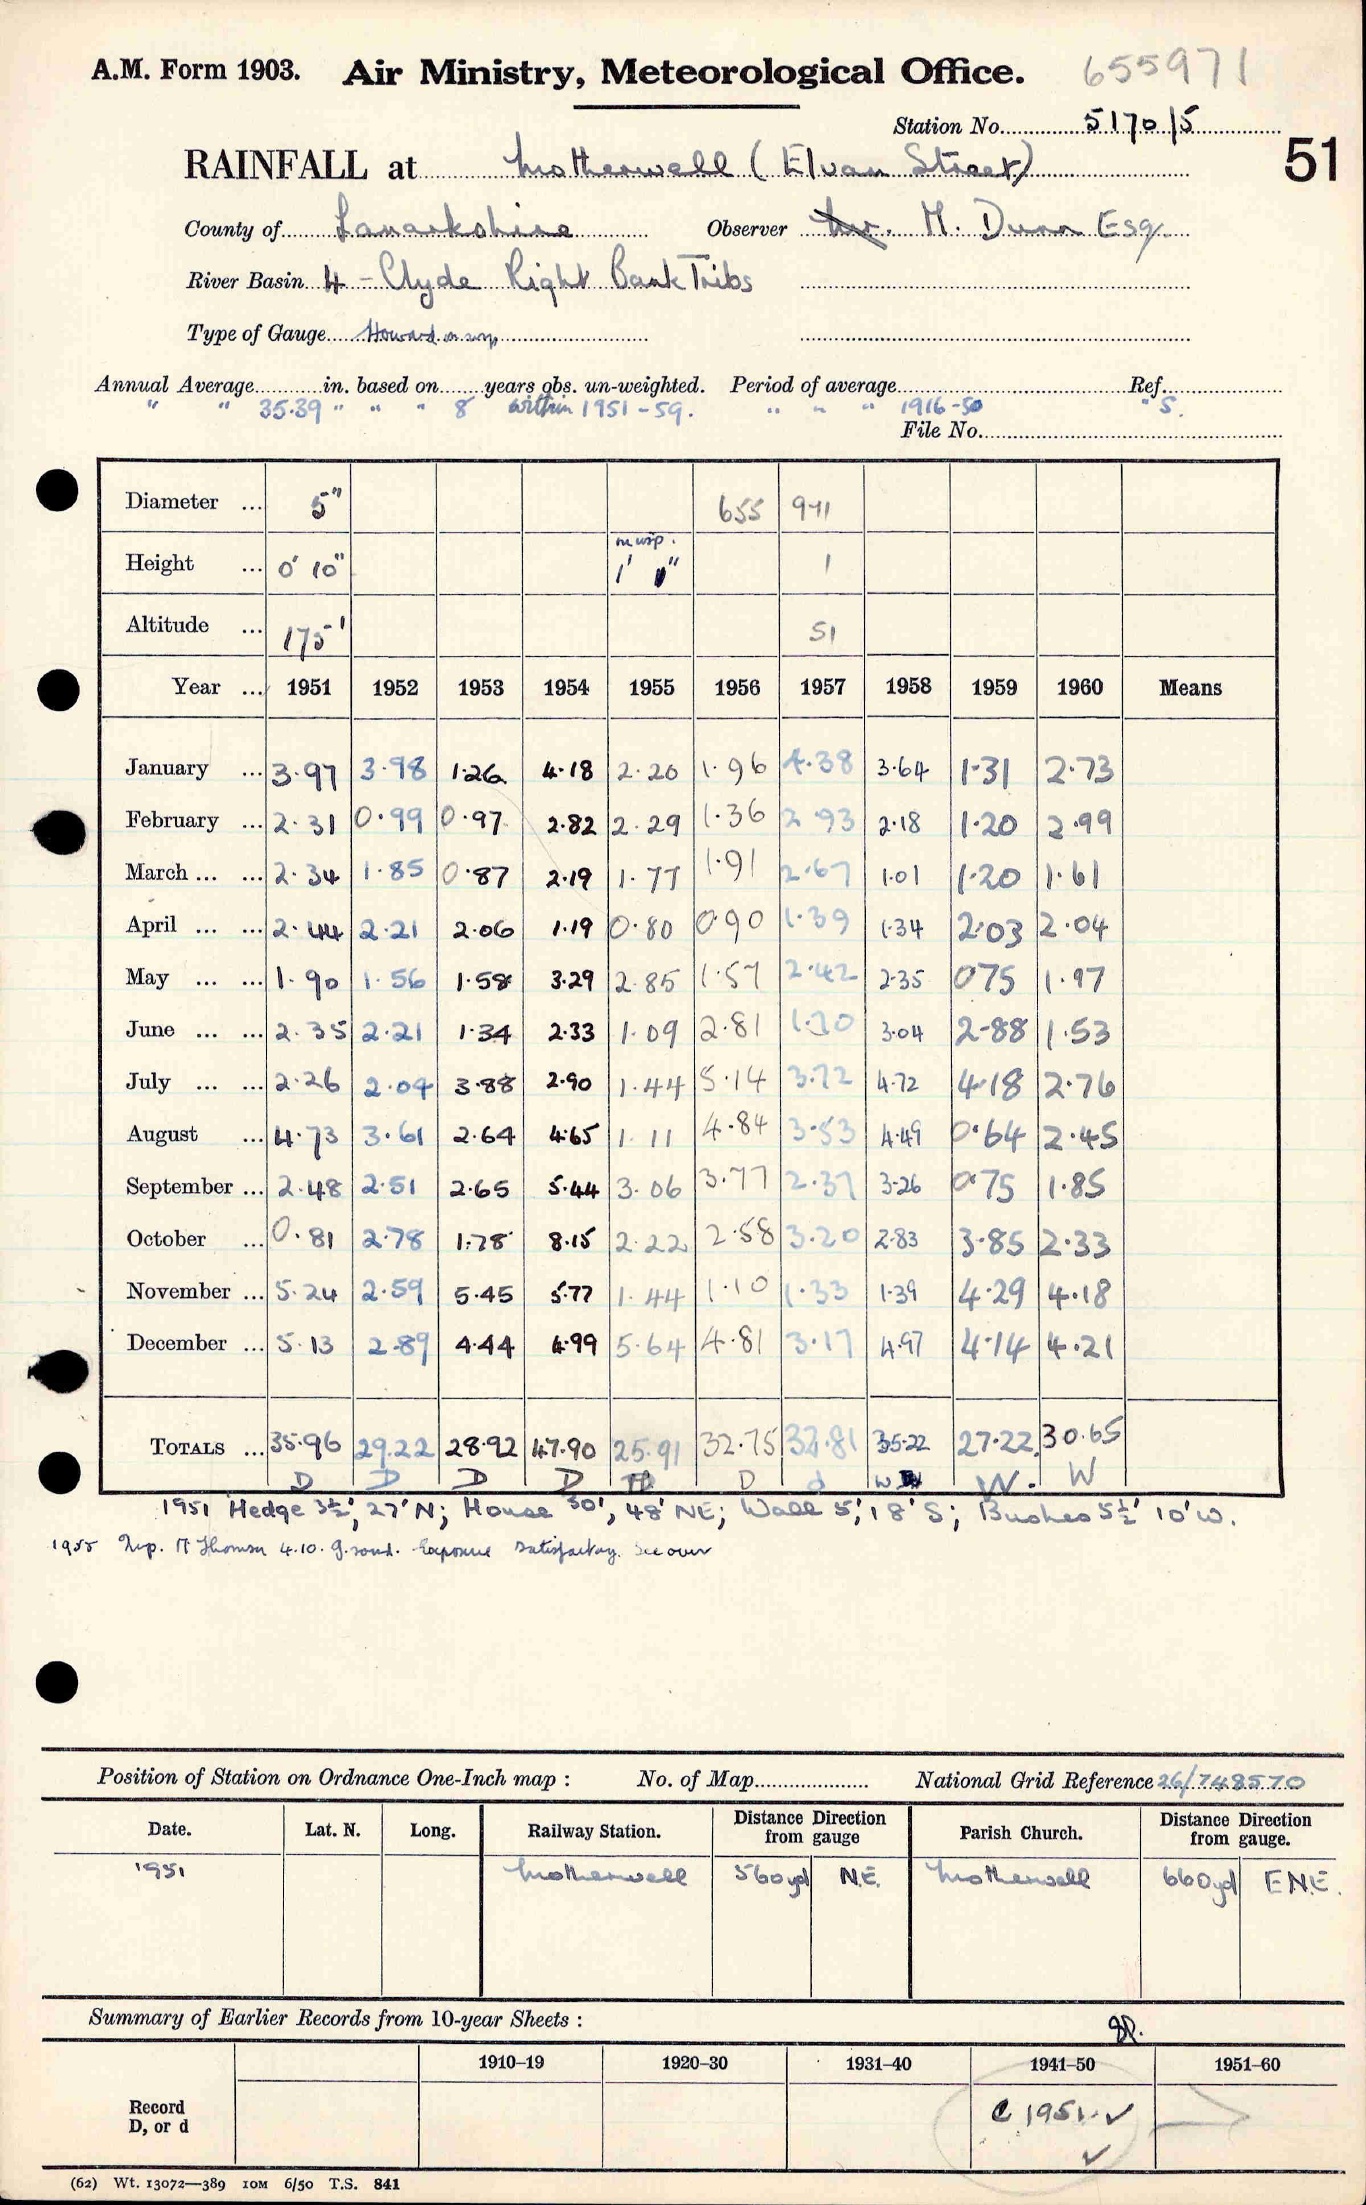 A.M. Form 1903. Air Ministry, Meteorological Office. 655971
Station No. 5170/5
51
RAINFALL at Motherwell (Elvan Street)
County of Lanarkshire Observer Mr. M. Dunn Esq.
River Basin 4 - Clyde Right Bank Tribs
Type of Gauge Howard on insp.
Annual Average in. based on years obs. un-weighted. Period of average Ref.
" " 35.39 " " " 8 within 1951-59. " " " 1916-50 " S.
File No.
Diameter ... 5" 655 971
Height ... 0' 10" on insp. 1' 0" 1
Altitude ... 175' 51
Year ... 1951 1952 1953 1954 1955 1956 1957 1958 1959 1960 Means
January ... 3.97 3.98 1.26 4.18 2.20 1.96 4.38 3.64 1.31 2.73
February ... 2.31 0.99 0.97 2.82 2.29 1.36 2.93 2.18 1.20 2.99
March ... ... 2.34 1.85 0.87 2.19 1.77 1.91 2.67 1.01 1.20 1.61
April ... ... 2.44 2.21 2.06 1.19 0.80 0.90 1.39 1.34 2.03 2.04
May ... ... 1.90 1.56 1.58 3.29 2.85 1.57 2.42 2.35 075 1.97
June ... ... 2.35 2.21 1.34 2.33 1.09 2.81 1.70 3.04 2.88 1.53
July ... ... 2.26 2.04 3.88 2.90 1.44 5.14 3.72 4.72 4.18 2.76
August ... 4.73 3.61 2.64 4.65 1.11 4.84 3.53 4.49 0.64 2.45
September ... 2.48 2.51 2.65 5.44 3.06 3.77 2.37 3.26 0.75 1.85
October ... 0.81 2.78 1.78 8.15 2.22 2.58 3.20 2.83 3.85 2.33
November ... 5.24 2.59 5.45 5.77 1.44 1.10 1.33 1.39 4.29 4.18
December ... 5.13 2.89 4.44 4.99 5.64 4.81 3.17 4.97 4.14 4.21
TOTALS ... 35.96 29.22 28.92 47.90 25.91 32.75 32.81 35.22 27.22 30.65
D D D D D D d W W. W
1951 Hedge 3½', 27' N; House 30', 48' NE; Wall 5', 18' S; Bushes 5½' 10' W.
1955 Insp. Thomson 4.10. Exposure satisfactory. See over
Position of Station on Ordnance One-Inch map : No. of Map National Grid Reference 26/748570
Date. Lat. N. Long. Railway Station. Distance Direction from gauge Parish Church. Distance Direction from gauge.
1951 Motherwell 560yd N.E. Motherwell 660yd E.N.E.
Summary of Earlier Records from 10-year Sheets :
1910–19 1920–30 1931–40 1941–50 1951–60
Record D, or d C 1951 ✓
✓
(62) Wt. 13072—389 10M 6/50 T.S. 841